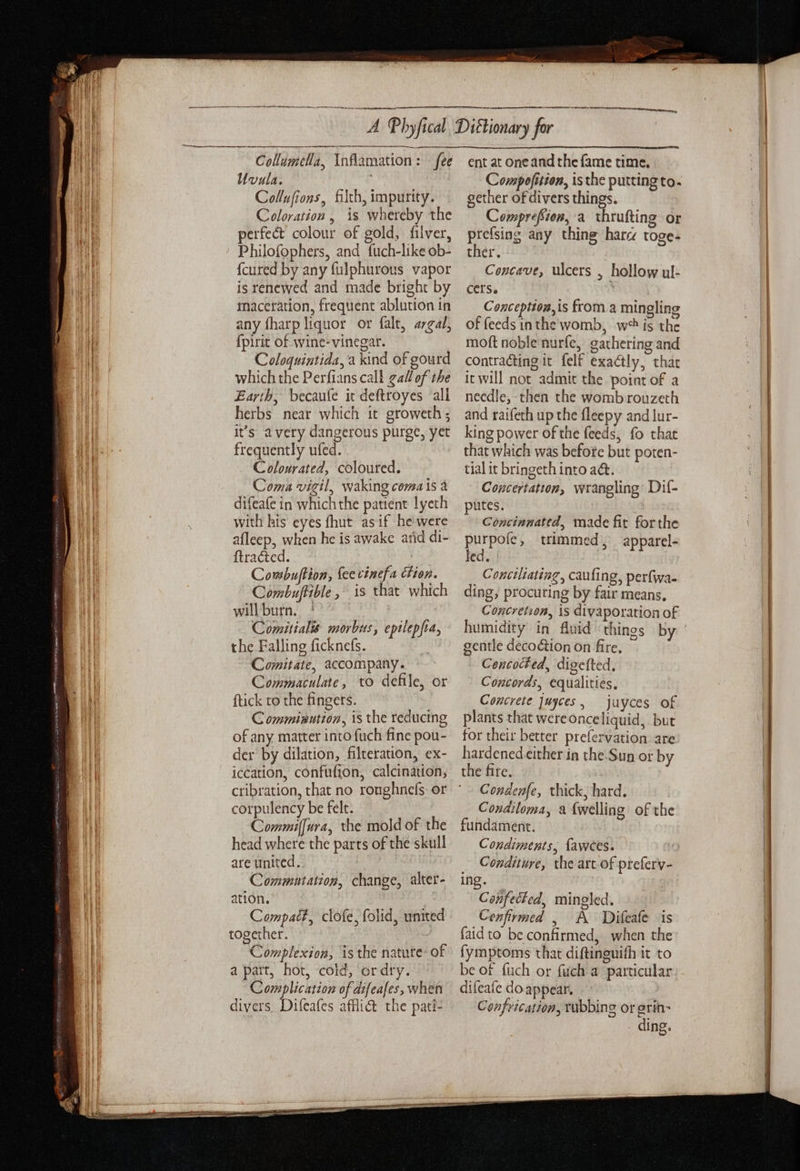 A Phyſical Dictionary for
Collumella, Inflamation: ſee
Uvula.
Colluſions, filth, impurity.
Coloration, is whereby the
perfect colour of gold, ſilver,
Philoſophers, and ſuch-like ob-
ſcured by any ſulphurous vapor
is renewed and made bright by
maceration, frequent ablution in
any ſharp liquor or ſalt, argal,
ſpirit of wine-vinegar.
Coloquintida, a kind of gourd
which the Perſians call gall of the
Earth, becauſe it deſtroyes all
herbs near which it groweth;
it's a very dangerous purge, yet
frequently uſed.
Colourated, coloured.
Coma vigil, waking coma is a
diſeaſe in which the patient lyeth
with his eyes ſhut as if he were
aſleep, when he is awake and di-
ſtracted.
Combuſtion, ſee cinefaction.
Combuſtible, is that which
will burn.
Comitialis morbus, epilepſia,
the Falling ſickneſs.
Comitate, accompany.
Commaculate, to defile, or
ſtick to the fingers.
Comminution, is the reducing
of any matter into ſuch fine pou-
der by dilation, filteration, ex-
iccation, confuſion, calcination,
cribration, that no roughneſs or
corpulency be felt.
Commiſſura, the mold of the
head where the parts of the skull
are united.
Commutation, change, alter-
ation.
Compact, cloſe, ſolid, united
together.
Complexion, is the nature of
a part, hot, cold, or dry.
Complication of diſeaſes, when
divers Diſeaſes afflict the pati-
ent at one and the ſame time.
Compoſition, is the putting to-
gether of divers things.
Compreſsion, a thruſting or
preſsing any thing hard toge-
ther.
Concave, ulcers, hollow ul-
cers.
Conception, is from a mingling
of ſeeds in the womb, wch is the
moſt noble nurſe, gathering and
contracting it ſelf exactly, that
it will not admit the point of a
needle, then the womb rouzeth
and raiſeth up the ſleepy and lur-
king power of the ſeeds, ſo that
that which was before but poten-
tial it bringeth into act.
Concertation, wrangling Diſ-
putes.
Concinnated, made fit for the
purpoſe, trimmed, apparel-
led.
Conciliating, cauſing, perſwa-
ding, procuring by fair means.
Concretion, is divaporation of
humidity in fluid things by
gentle decoction on fire.
Concocted, digeſted.
Concords, equalities.
Concrete juyces, juyces of
plants that were once liquid, but
for their better preſervation are
hardened either in the Sun or by
the fire.
Condenſe, thick, hard.
Condiloma, a ſwelling of the
fundament.
Condiments, ſawces.
Conditure, the art of preſerv-
ing.
Confected, mingled.
Confirmed, A Diſeaſe is
ſaid to be confirmed, when the
ſymptoms that diſtinguiſh it to
be of ſuch or ſuch a particular
diſeaſe do appear.
Confrication, rubbing or grin-
ding.